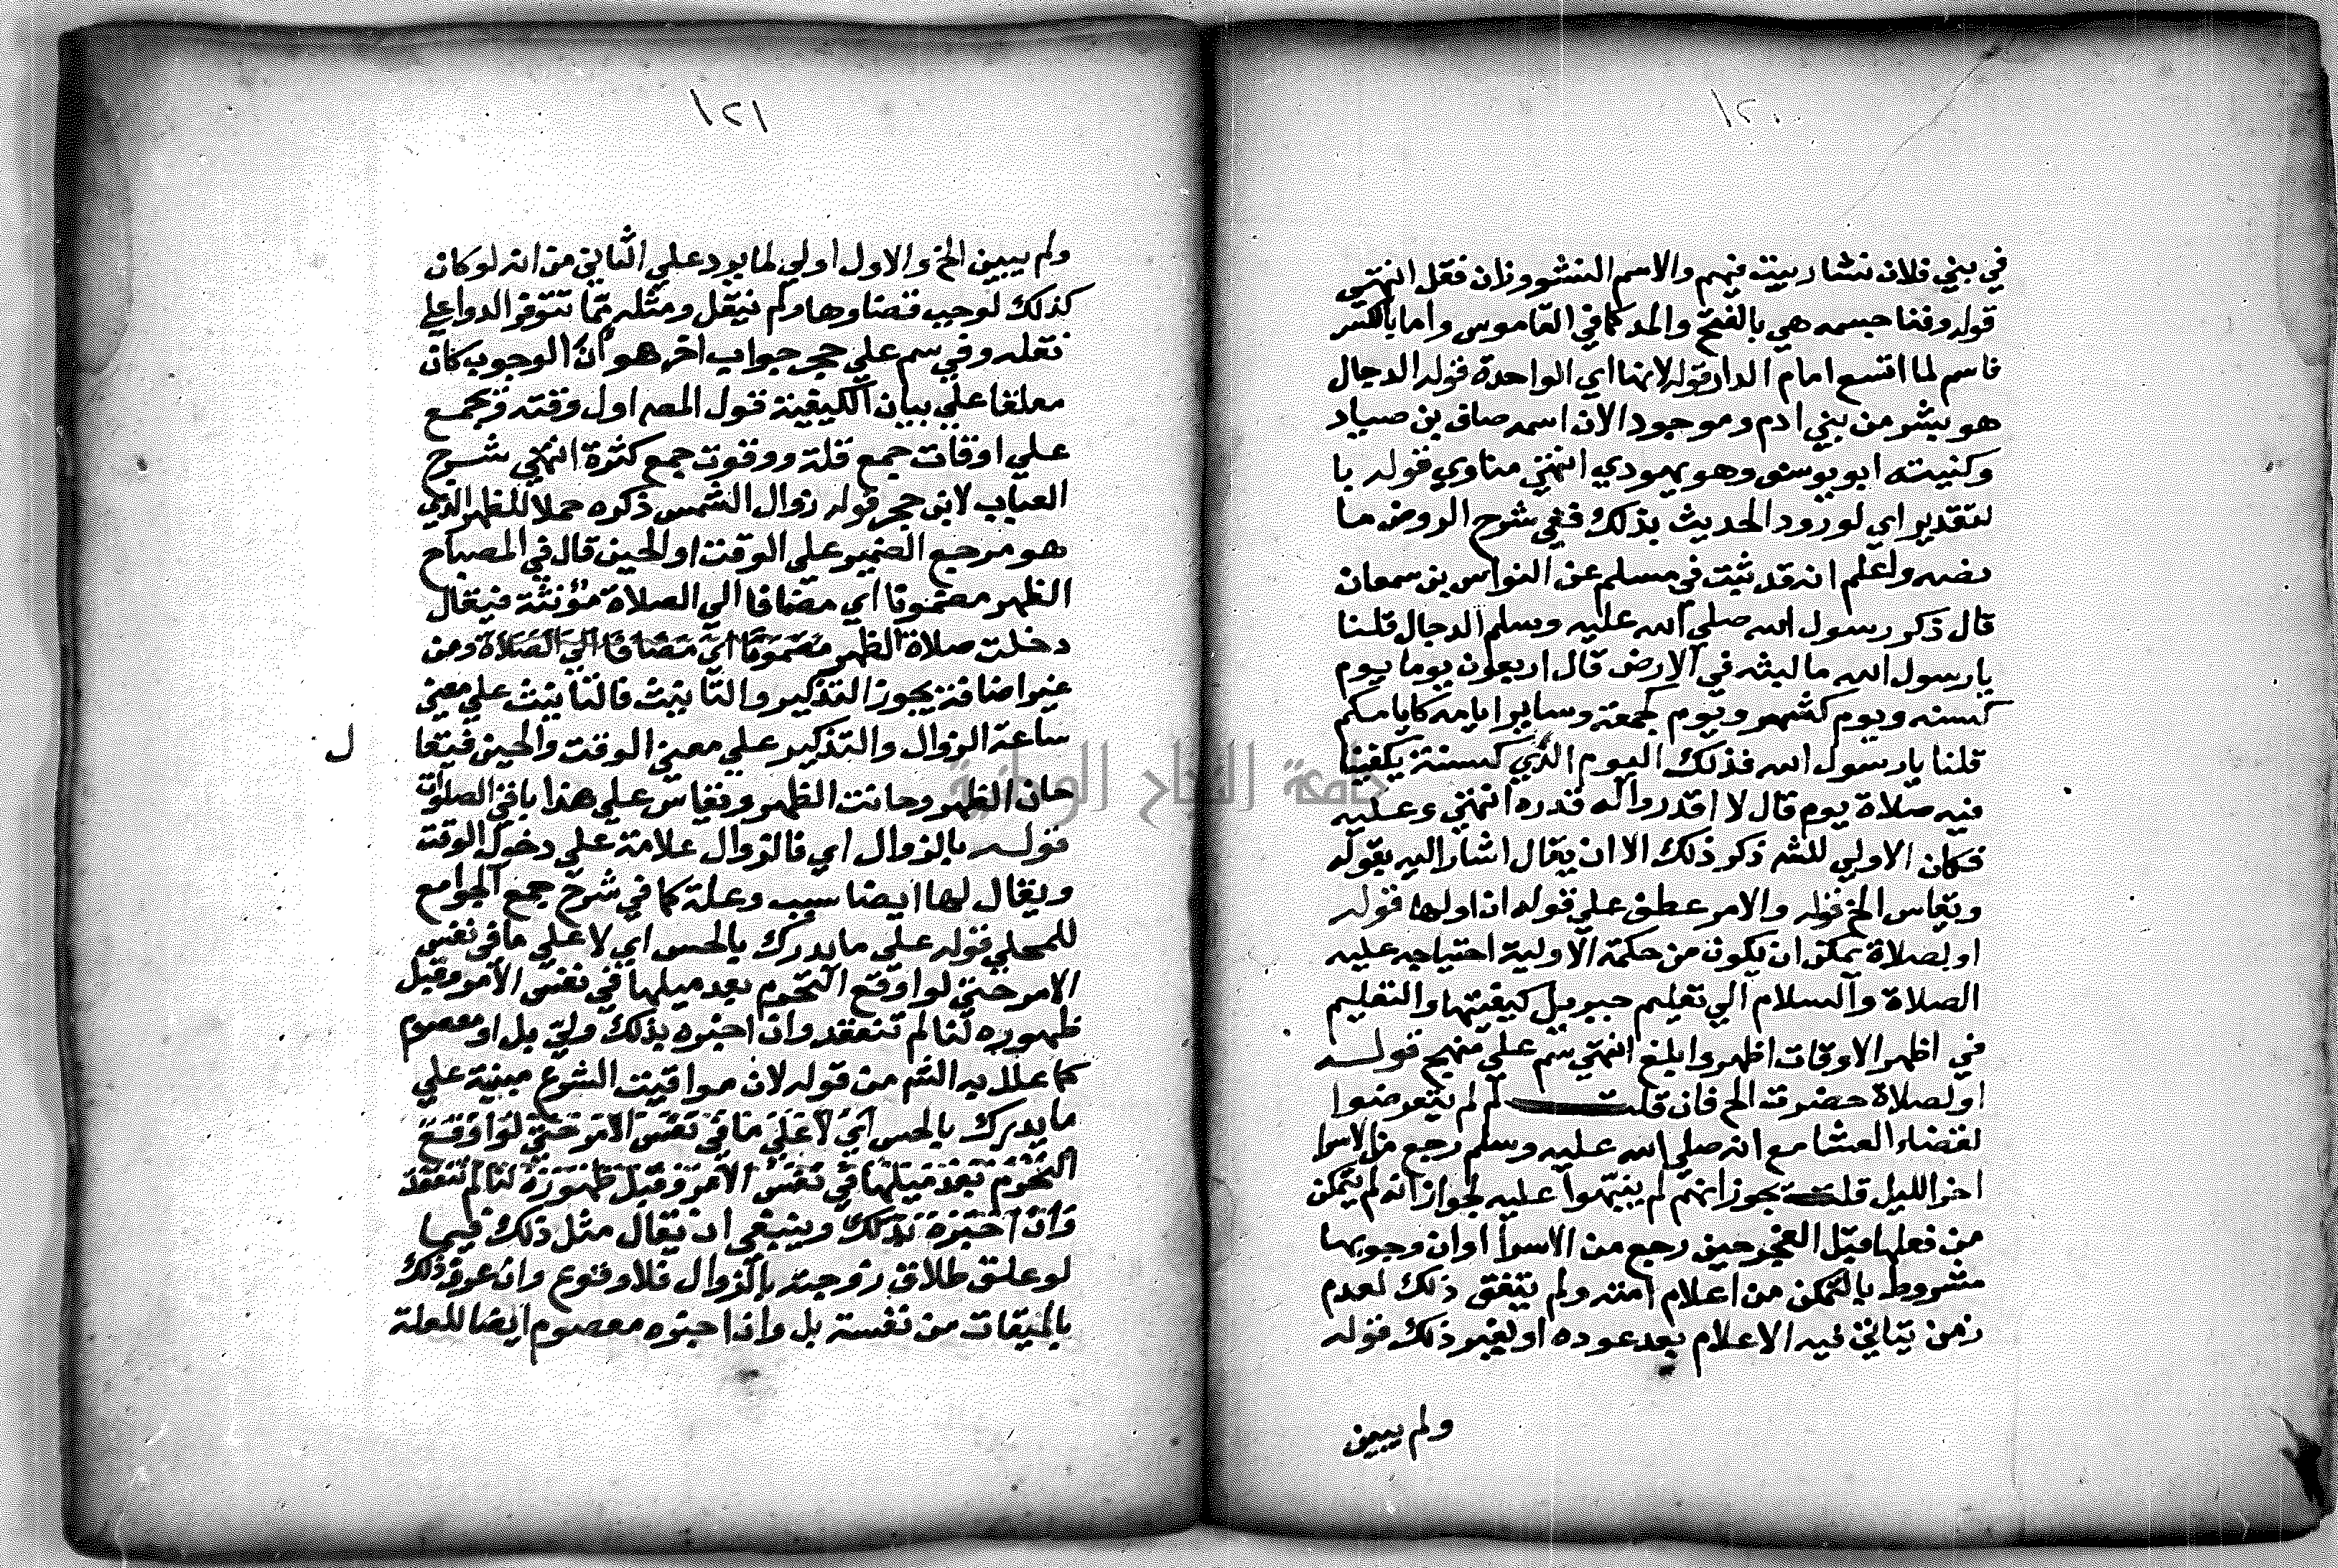 ١٢٠
في بني فلان نشا ربيت فيهم والاسم النشو وزان فعل انتهى
قوله وفنا جسمه هي بالفتح والمد كما في القاموس واما بالكسر
فاسم لما اتسع امام الدار قوله لانها اي الواحدة قوله الدجال
هو بشر من بني ادم وموجود الان اسمه صاف بن صياد
وكنيته ابو يوسف وهو يهودي انتهى مناوي قوله با
لتقدير اي لورود الحديث بذلك ففي شرح الروض ما
نصه واعلم انه قد ثبت في مسلم عن النواس بن سمعان
قال ذكر رسول الله صلي الله عليه وسلم الدجال قلنا
يا رسول الله ما لبثه في الارض قال اربعون يوما يوم
كسنه ويوم كشهر ويوم كجمعة وساير ايامه كايامكم
قلنا يا رسول الله فذلك اليوم الذي كسنة يكفينا
فيه صلاة يوم قال لا اقدروا له قدره انتهى وعليه
فكان الاولي للشر ذكر ذلك الا ان يقال اشار اليه بقوله
ويقاس الخ قوله والامر عطف علي قوله ان اولها قوله
او بصلاة يمكن ان يكون من حكمة الاولية احتياجه عليه
الصلاة والسلام الي تعليم جبريل كيفيتها والتعليم
في اظهر الاوقات اظهر وابلغ انتهى سم علي منهج قولــه
اولصلاة حضرت الخ فان قلت لم لم يتعرضوا
لقضاء العشا مع انه صلي الله عليه وسلم رجع من الاسرا
اخر الليل قلت يجوز انهم لم ينبهوا عليه لجواز انه لم يتمكن
من فعلها قبل الفجر حين رجع من الاسرا او ان وجوبها
مشروط بالتمكن من اعلام امته ولم يتفق ذلك لعدم
زمن يتاني فيه الاعلام بعد عوده او لغير ذلك قوله
ولم يبين
١٢١
ولم يبين الخ والاول اولي لما يرد علي الثاني من انه لو كان
كذلك لوجب قضاوها ولم ينقل ومثله مما تتوفر الدواعلي
نقله وفي سم علي حجر جواب اخر هو ان الوجوب كان
معلقا علي بيان الكيفية قول المصر اول وقته و يجمع
علي اوقات جمع قلة ووقوت جمع كثرة انتهى شــرح
العباب لابن حجر قوله زوال الشمس ذكره حملا للظهر الذي
هو مرجع الضمير علي الوقت او الحين قال في المصباح
الظهر مضموما اي مضافا الي الصلاة مؤنثة فيقال
دخلت صلاة الظهر مضموما اي مضافا الي الصلاة ومن
غير اضافة يجوز التذكير والتانيث فالتانيث علي معني
ساعة الزوال والتذكير علي معني الوقت والحين فيقا
ل
حان الظهر وحانت الظهر ويقاس علي هذا باقي الصلوات
قولــه بالزوال اي فالزوال علامة علي دخول الوقت
ويقال لها ايضا سبب وعلة كما في شرح جمع الجوامع
للمحلي قوله علي ما يدرك بالحس اي لا علي ما في نفس
الامر حتي لو اوقع التحرم بعد ميلها في نفس الامر وقبل
ظهوره لنا لم تنعقد وان اخبره بذلك ولي بل او معصوم
كما علل به الشر من قوله لان مواقيت الشرع مبنية علي
ما يدرك بالحس اي لا علي ما في نفس الامر حتي لو اوقع
التحرم بعد ميلها في نفس الامر وقبل ظهوره لنا لم تنعقد
وان اخبره بذلك وينبغي ان يقال مثل ذلك فيما
لو علق طلاق زوجته بالزوال فلا وقوع وان عرف ذلك
بالميقات من نفسه بل وان اخبره معصوم ايضا للعلة
جامعة النجاح الوطنية